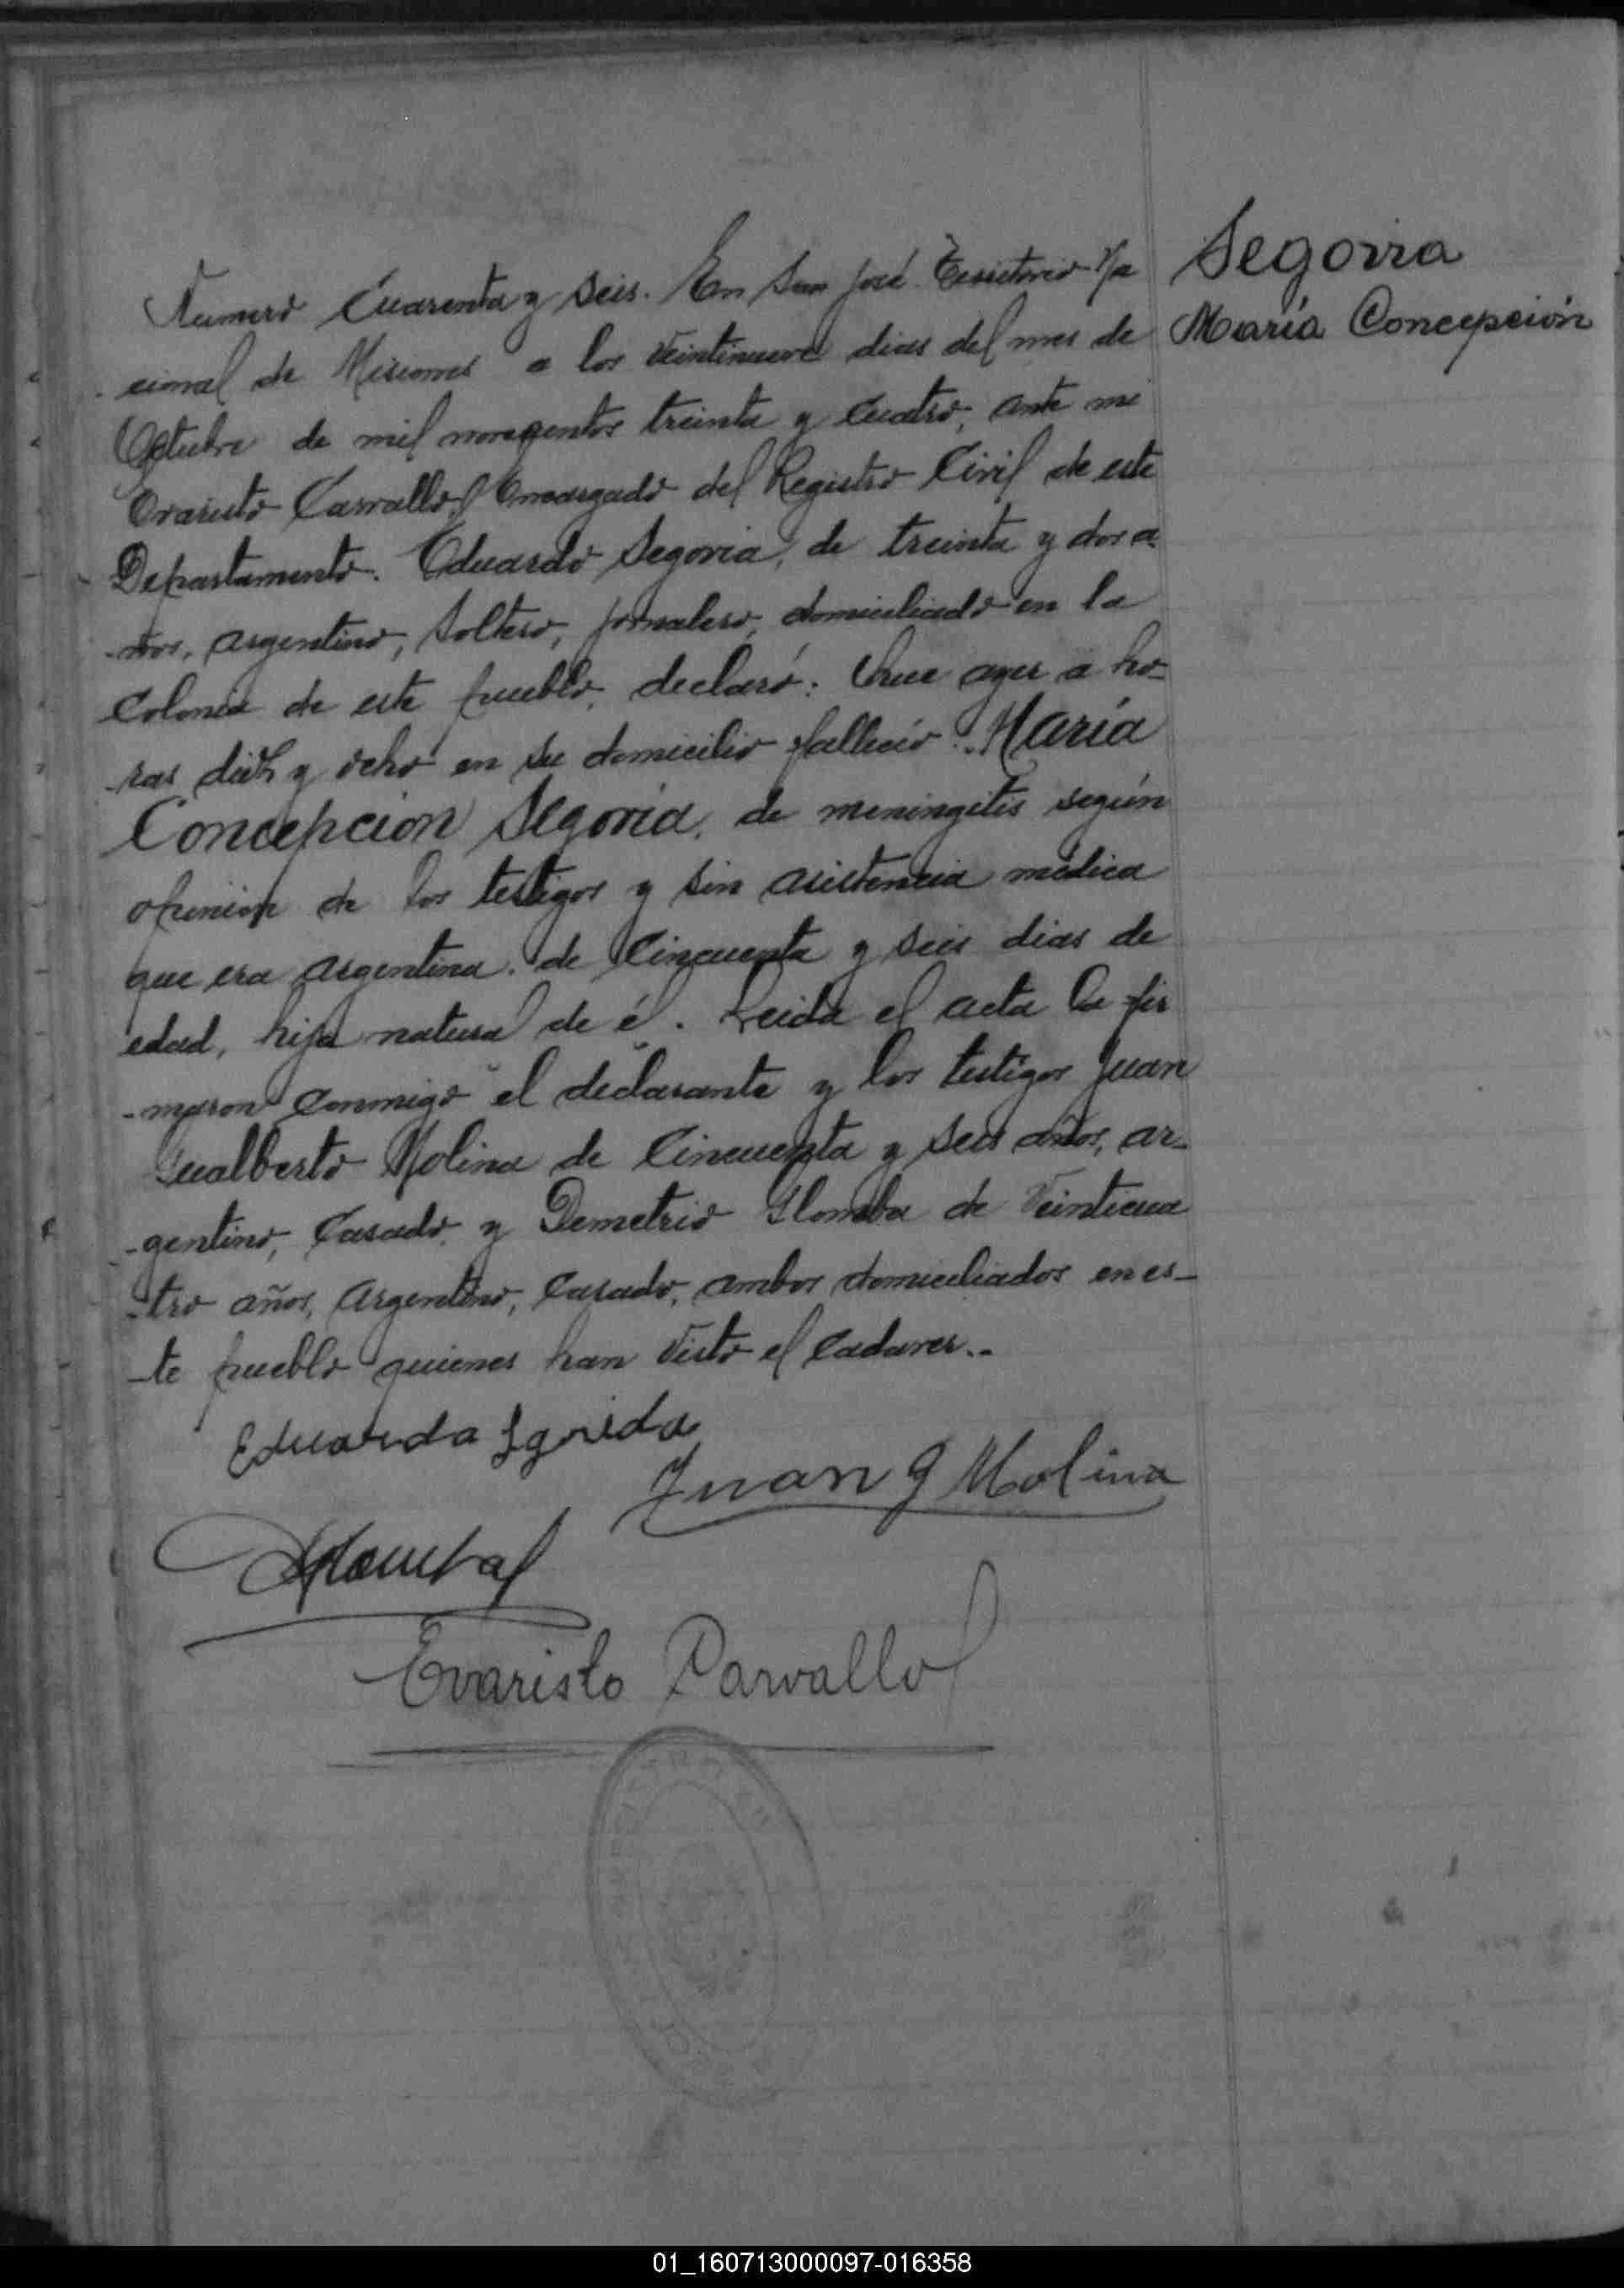 Segovia
María Concepción
Numero Cuarenta y seis. En San José Territorio Na
cional de Misiones a los veintinueve dias del mes de
Octubre de mil novecientos treinta y cuatro, ante mi
Evaristo Carvallo, Encargado del Registro Civil de este
Departamento. Eduardo Segovia, de treinta y dos a-
-ños, argentino, soltero, jornalero, domiciliado en la
Colonia de este pueblo, declaró: Que ayer a ho-
-ras diez y ocho en su domicilio falleció María
Concepción Segovia, de meningitis según
opinión de los testigos y sin asistencia médica
que era argentina, de Cincuenta y seis dias de
edad, hija natural de él. Leida el acta la fir
-maron conmigo el declarante y los testigos Juan
Gualberto Molina de Cincuenta y seis años, ar-
-gentino, Casado, y Demetrio Hlomba de Veinticua
-tro años, Argentino, Casado, ambos domiciliados en es-
-te pueblo quienes han visto el Cadaver..-
Juan G Molina
Evaristo Carvallo
01_160713000097-016358